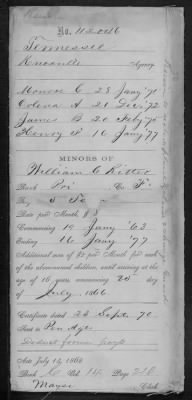 No. 112046
Tennessee
Knoxville Agency.
Monroe C 28 Jany '71
Colena A 21 Dec, '72
James B 20 Feby '75
Henry P 16 Jany '77
MINORS OF
William C Ritter
Rank Pri Co. F.
Reg. 3 Te
Rate per Month $ 8
Commencing 19 Jany '63
Ending 16 Jany '77
Additional sum of $2 per Month for each
of the abovenamed children, until arriving at the
age of 16 years, commencing 25 day
of July, 1866
Certificate dated 23 Sept. 70
Sent to Pen Agt
Deduct former payts
Acts July 14, 1862
Book C Vol. 14 Page 216
Clerk